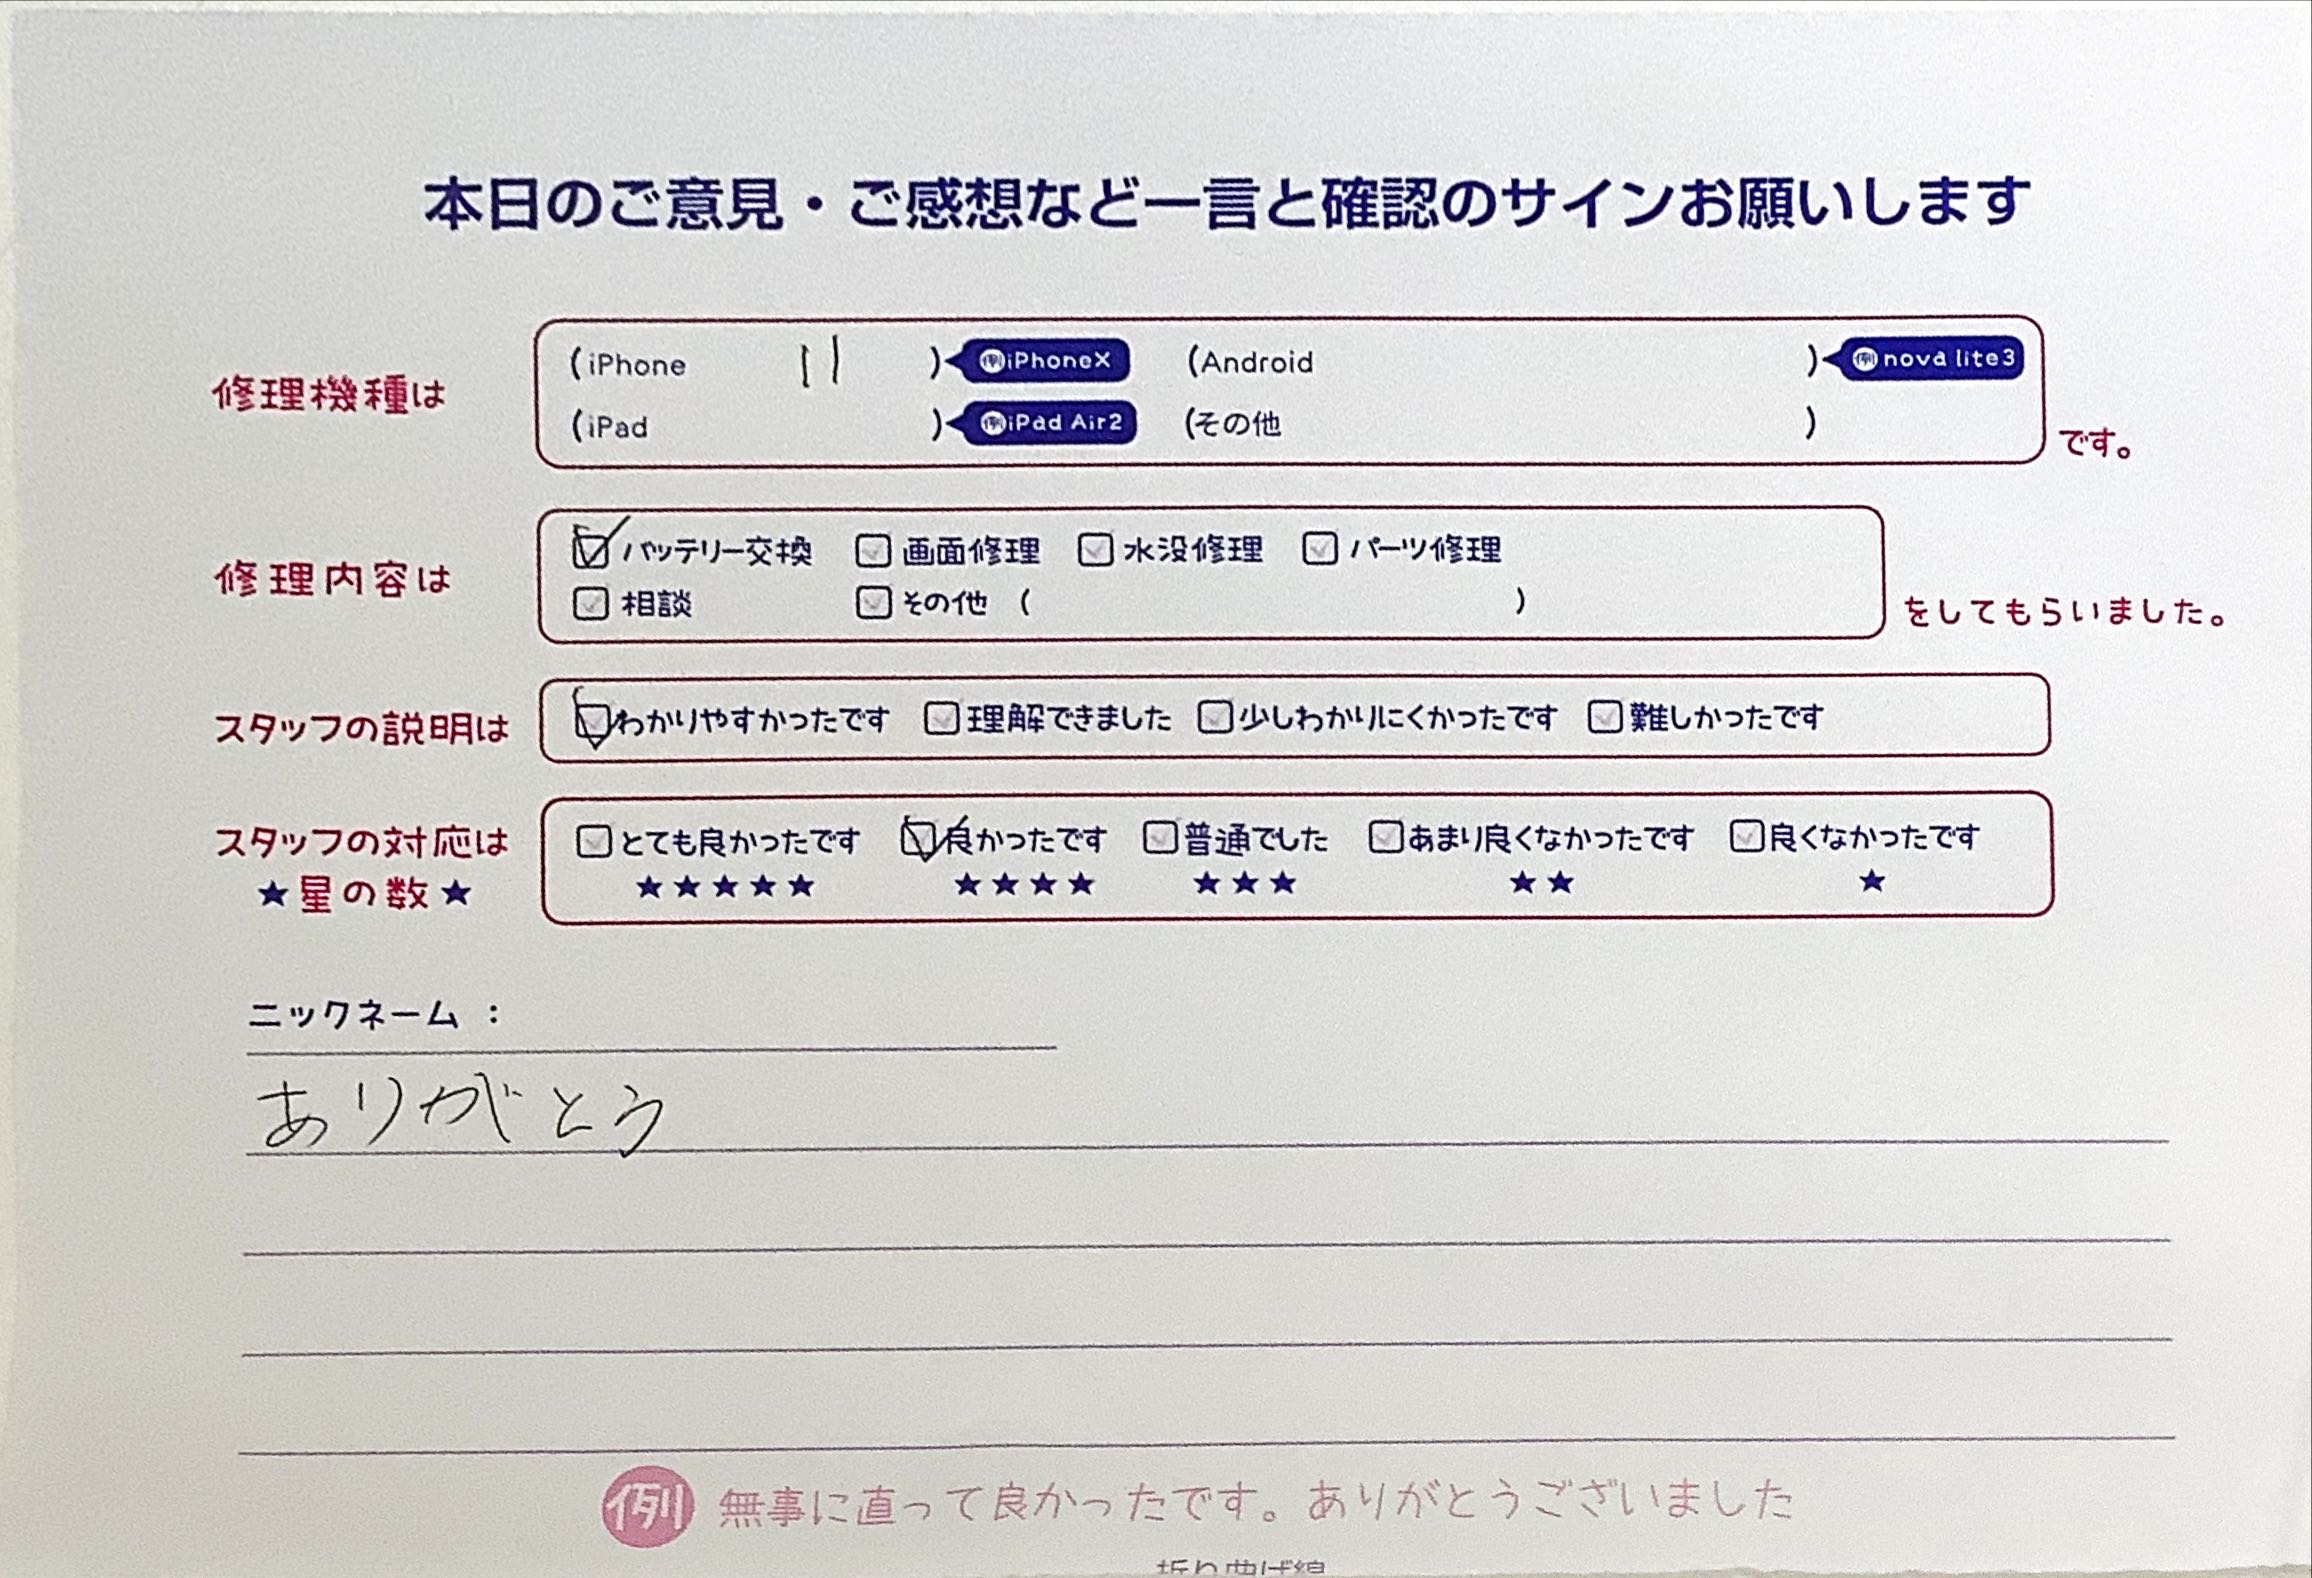 本日のご意見・ご感想など一言と確認のサインお願いします
修理機種は
(iPhone 11 ) 例iPhoneX (Android ) 例nova lite3
(iPad ) 例iPad Air2 (その他 ) です。
修理内容は
バッテリー交換 画面修理 水没修理 パーツ修理
相談 その他 ( ) をしてもらいました。
スタッフの説明は わかりやすかったです 理解できました 少しわかりにくかったです 難しかったです
スタッフの対応は とても良かったです 良かったです 普通でした あまり良くなかったです 良くなかったです
★星の数★ ★★★★★ ★★★★ ★★★ ★★ ★
ニックネーム：
ありがとう
例 無事に直って良かったです。ありがとうございました
折り曲げ線